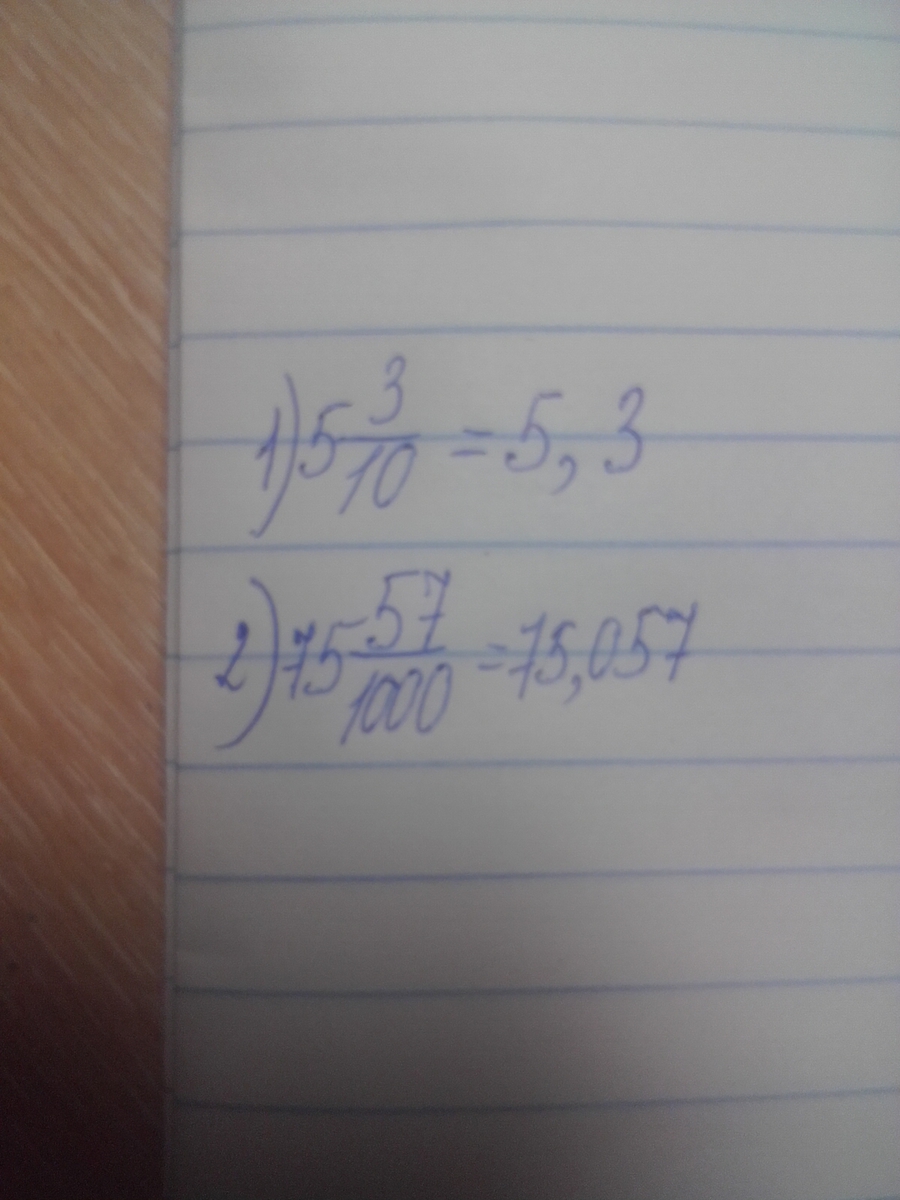 1) 5 3/10 = 5,3
2) 75 57/1000 = 75,057